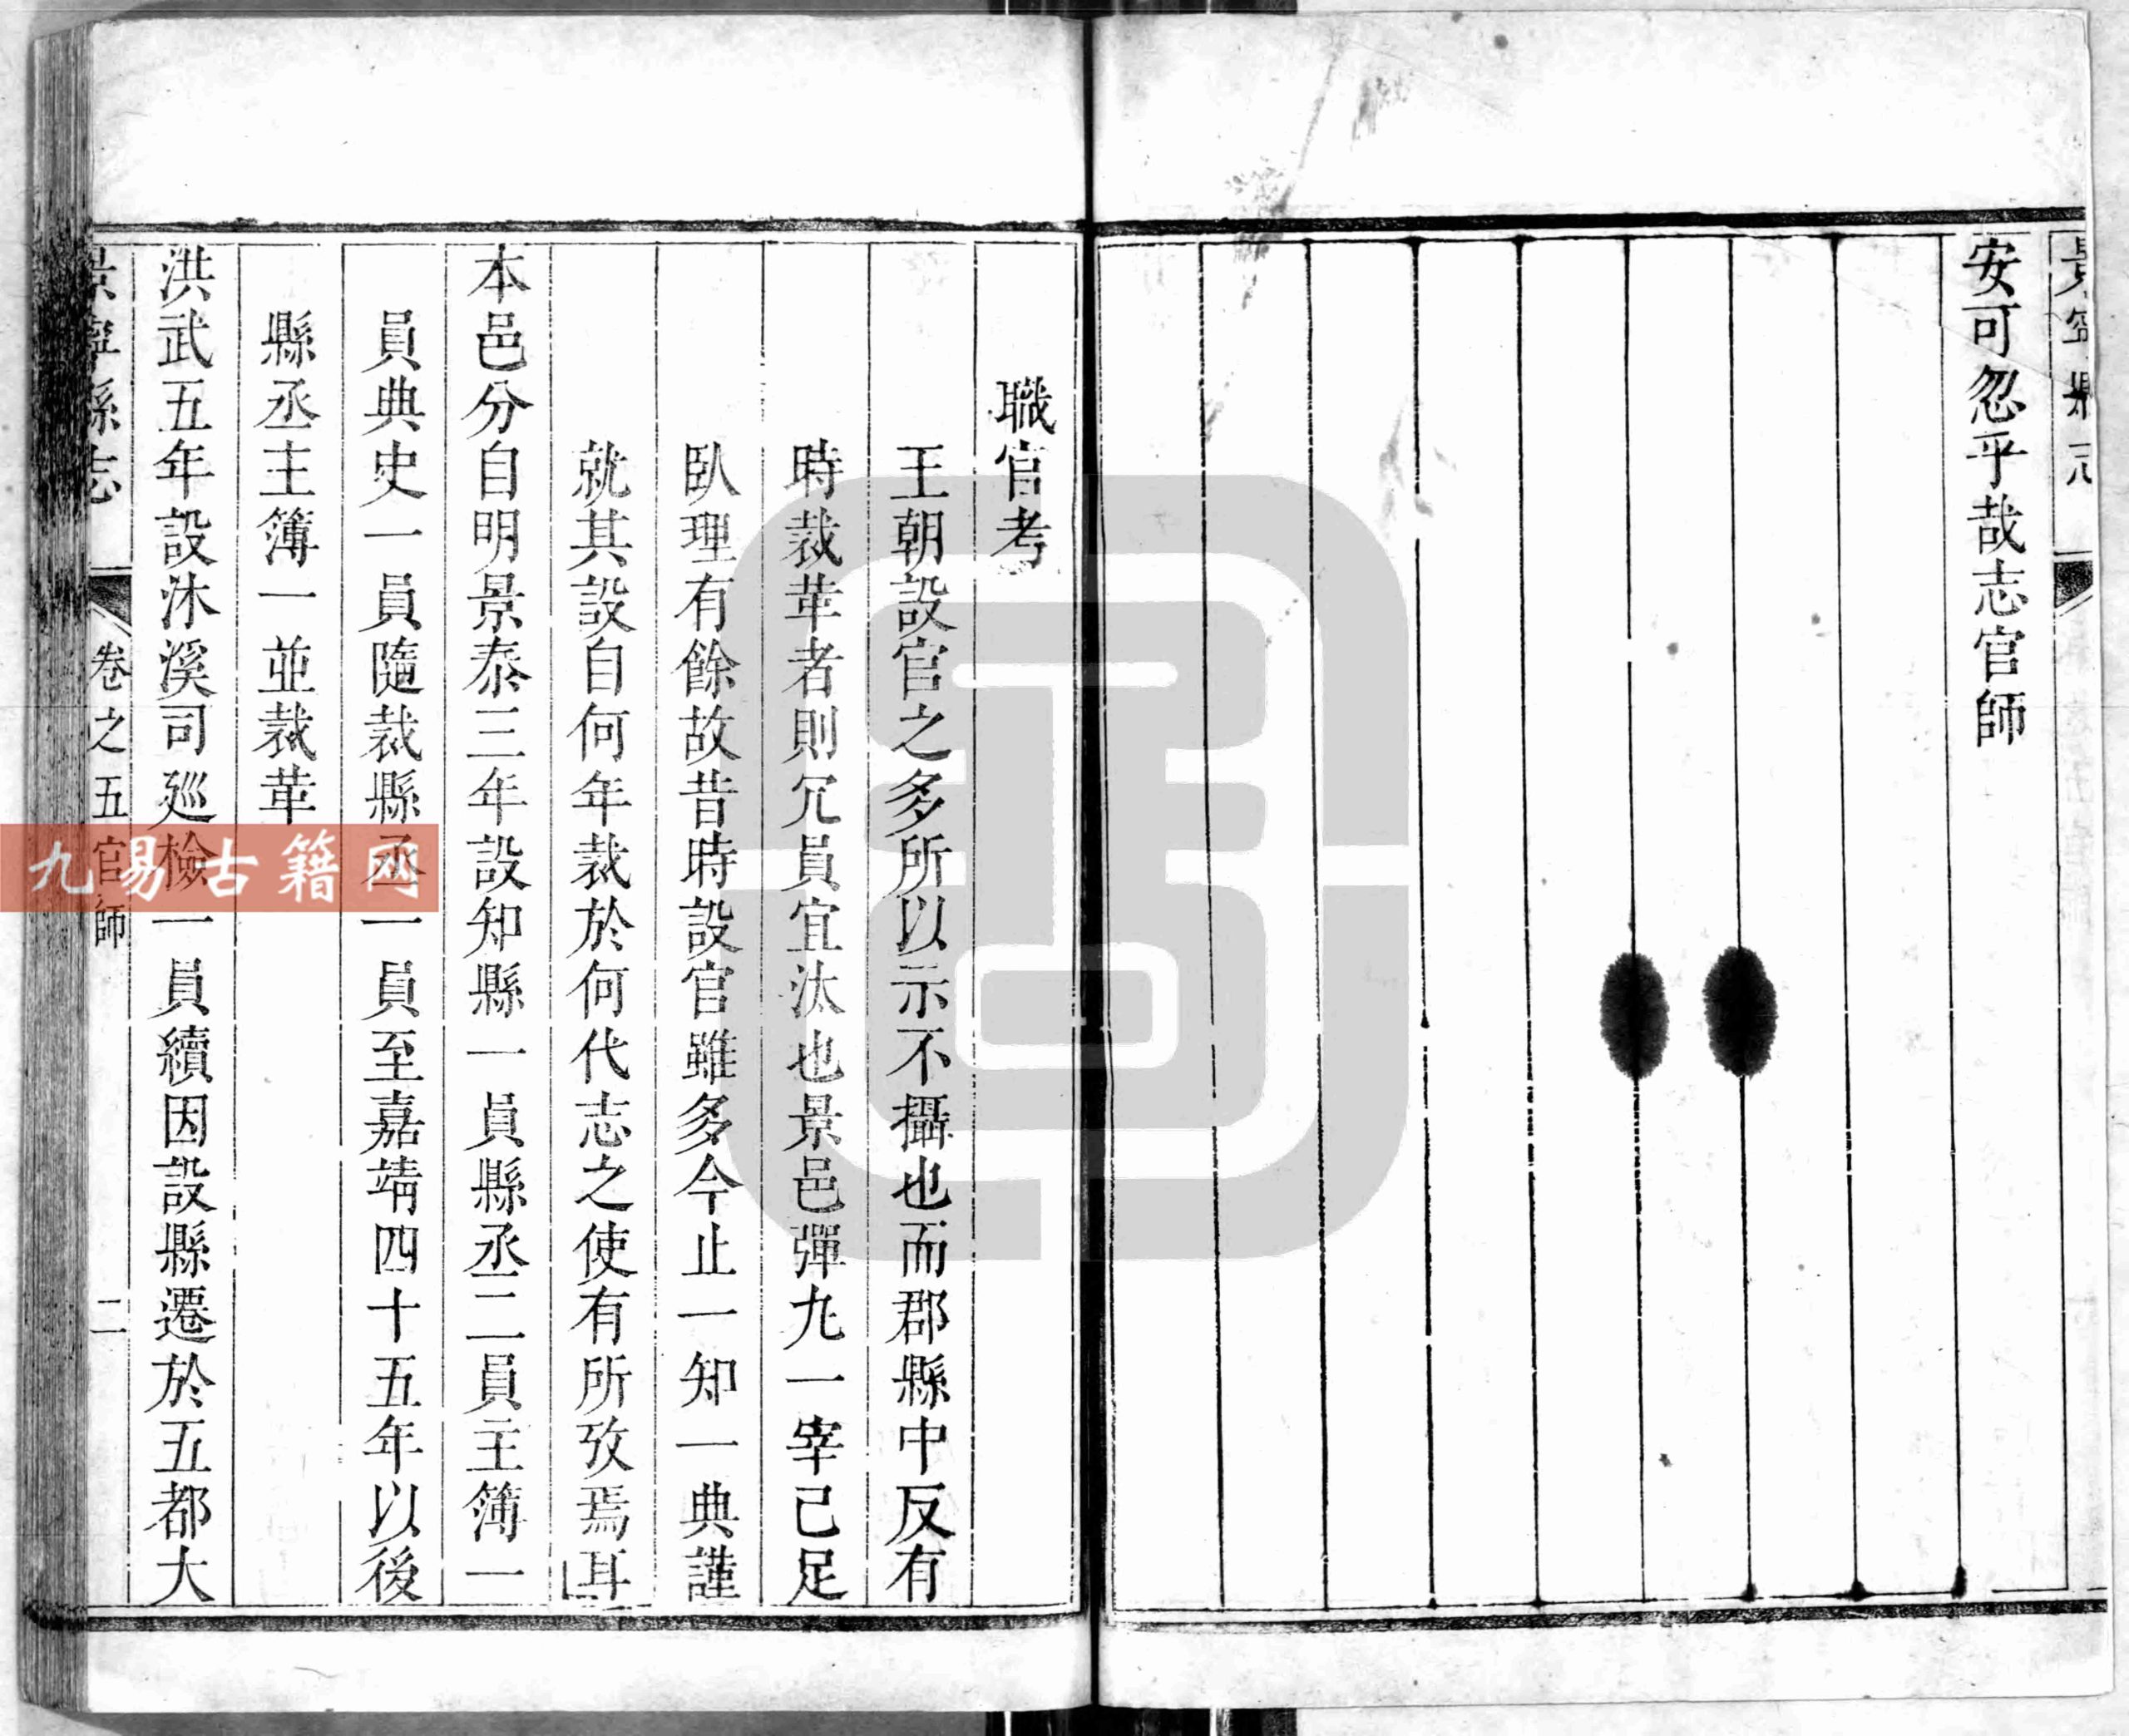 安可忽乎哉志官師
職官考
王朝設官之多所以示不攝也而郡縣中反有
時裁革者則冗員宜汰也景邑彈九一宰己足
臥理有餘故昔時設官雖多今止一知一典謹
就其設自何年裁於何代志之使有所攷焉耳
本邑分自明景泰三年設知縣一員縣丞二員主簿一
員典史一員隨裁縣丞一員至嘉靖四十五年以後
縣丞主簿一並裁革
洪武五年設沐溪司廵檢一員續因設縣遷於五都大
景寧縣志 卷之五官師 二
九易古籍网